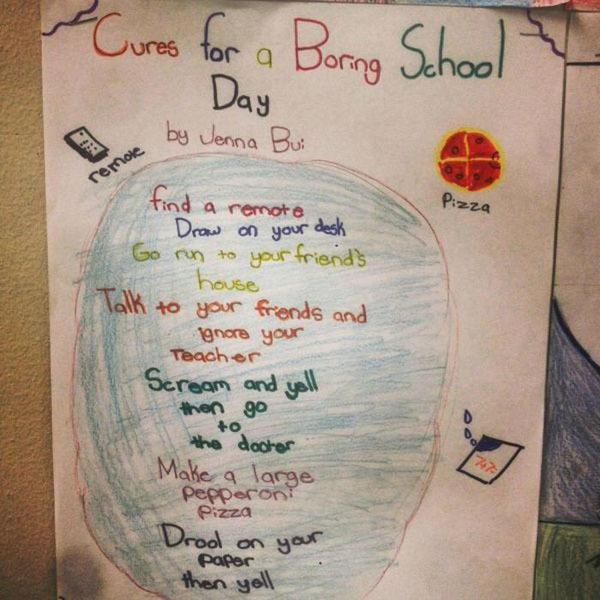 Cures for a Boring School
Day
by Jenna Bui
remote
Pizza
find a remote
Draw on your desk
Go run to your friend's
house
Talk to your friends and
ignore your
Teacher
Scream and yell
then go
to
the doctor
Make a large
pepperoni
pizza
Drool on your
paper
then yell